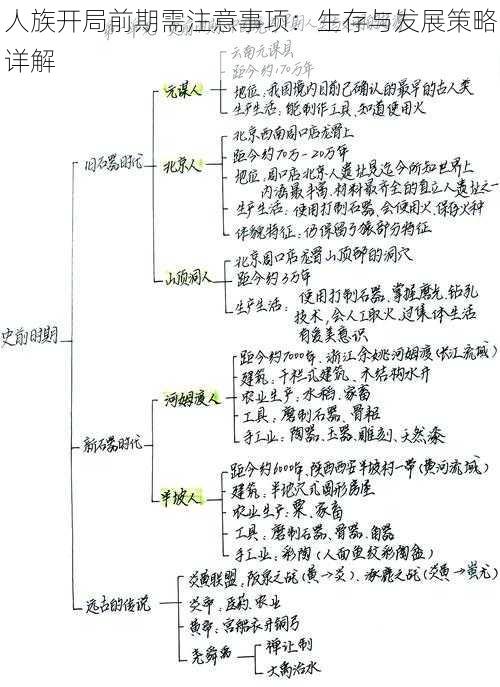 人族开局前期需注意事项：生存与发展策略
详解
云南元谋县
距今约170万年
元谋人
地位：我国境内目前已确认的最早的古人类
生产生活：能制作工具，知道使用火
北京西南周口店龙骨山
距今约70万－20万年
旧石器时代
北京人
地位：周口店北京人遗址是迄今所知世界上
内涵最丰富、材料最齐全的直立人遗址之一
生产生活：使用打制石器、会使用火、保存火种
体貌特征：仍保留了猿部分特征
北京周口店龙骨山顶部的洞穴
山顶洞人
距今约3万年
生产生活：使用打制石器、掌握磨光、钻孔
技术，会人工取火，过集体生活
有爱美意识
史前时期
距今约7000年、浙江余姚河姆渡（长江流域）
建筑：干栏式建筑、木结构水井
河姆渡人
农业生产：水稻、家畜
工具：磨制石器、骨耜
手工业：陶器、玉器、雕刻、天然漆
新石器时代
距今约6000年、陕西西安半坡村一带（黄河流域）
建筑：半地穴式圆形房屋
半坡人
农业生产：粟、家畜
工具：磨制石器、骨器、角器
手工业：彩陶（人面鱼纹彩陶盆）
炎黄联盟：阪泉之战（黄→炎）、涿鹿之战（炎黄→蚩尤）
远古的传说
炎帝：医药、农业
黄帝：宫船衣井铜弓
尧舜禹
禅让制
大禹治水